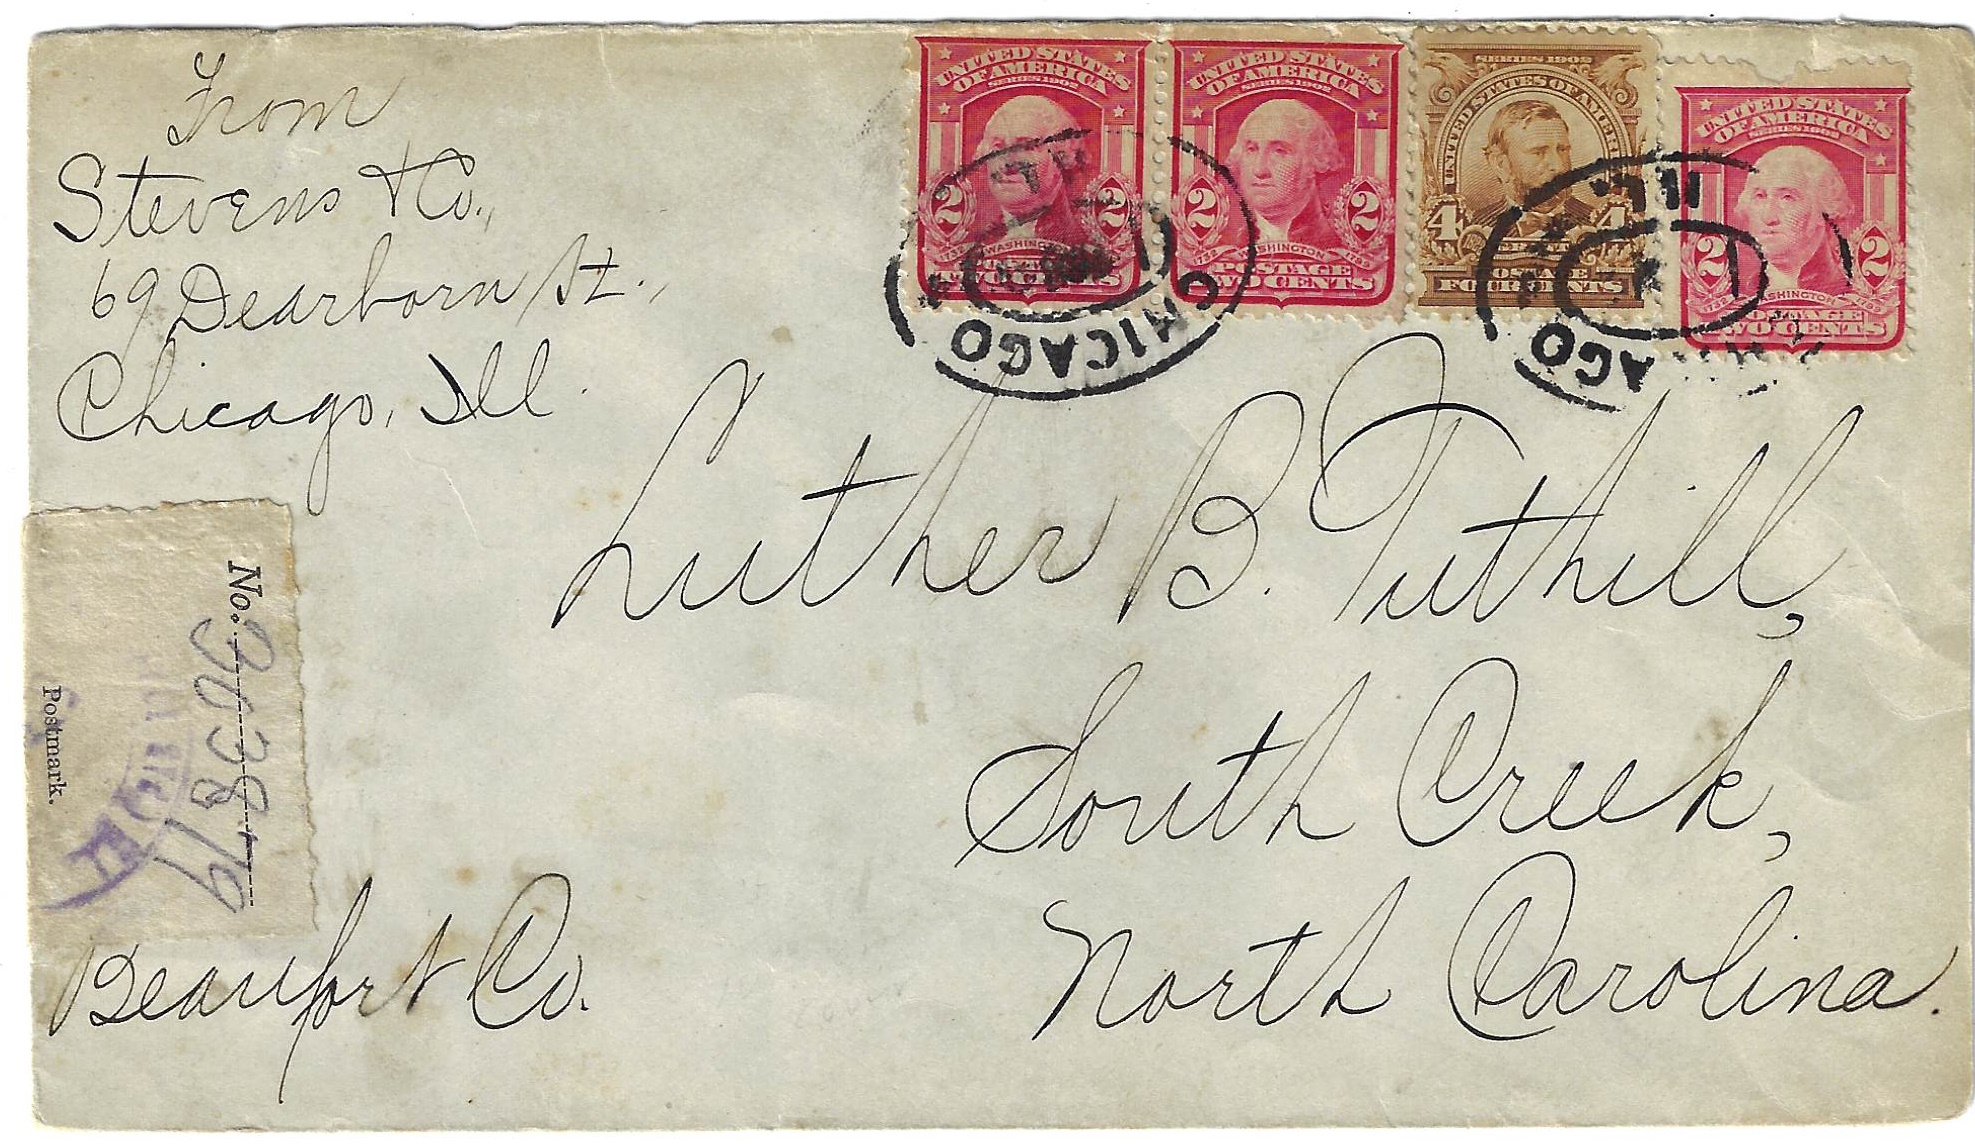 From
Stevens & Co.,
69 Dearborn St.,
Chicago, Ill.
UNITED STATES
OF AMERICA
SERIES 1902
2 2
1732 WASHINGTON
POSTAGE
TWO CENTS
UNITED STATES
OF AMERICA
SERIES 1902
2 2
1732 WASHINGTON 1799
POSTAGE
TWO CENTS
SERIES 1902
UNITED STATES OF AMERICA
4 4
POSTAGE
FOUR CENTS
UNITED STATES
OF AMERICA
SERIES 1902
2 2
1732 WASHINGTON
POSTAGE
TWO CENTS
CHICAGO
ILL.
AGO
Luther B. Tuthill,
South Creek,
North Carolina.
No.
Postmark.
Beaufort Co.